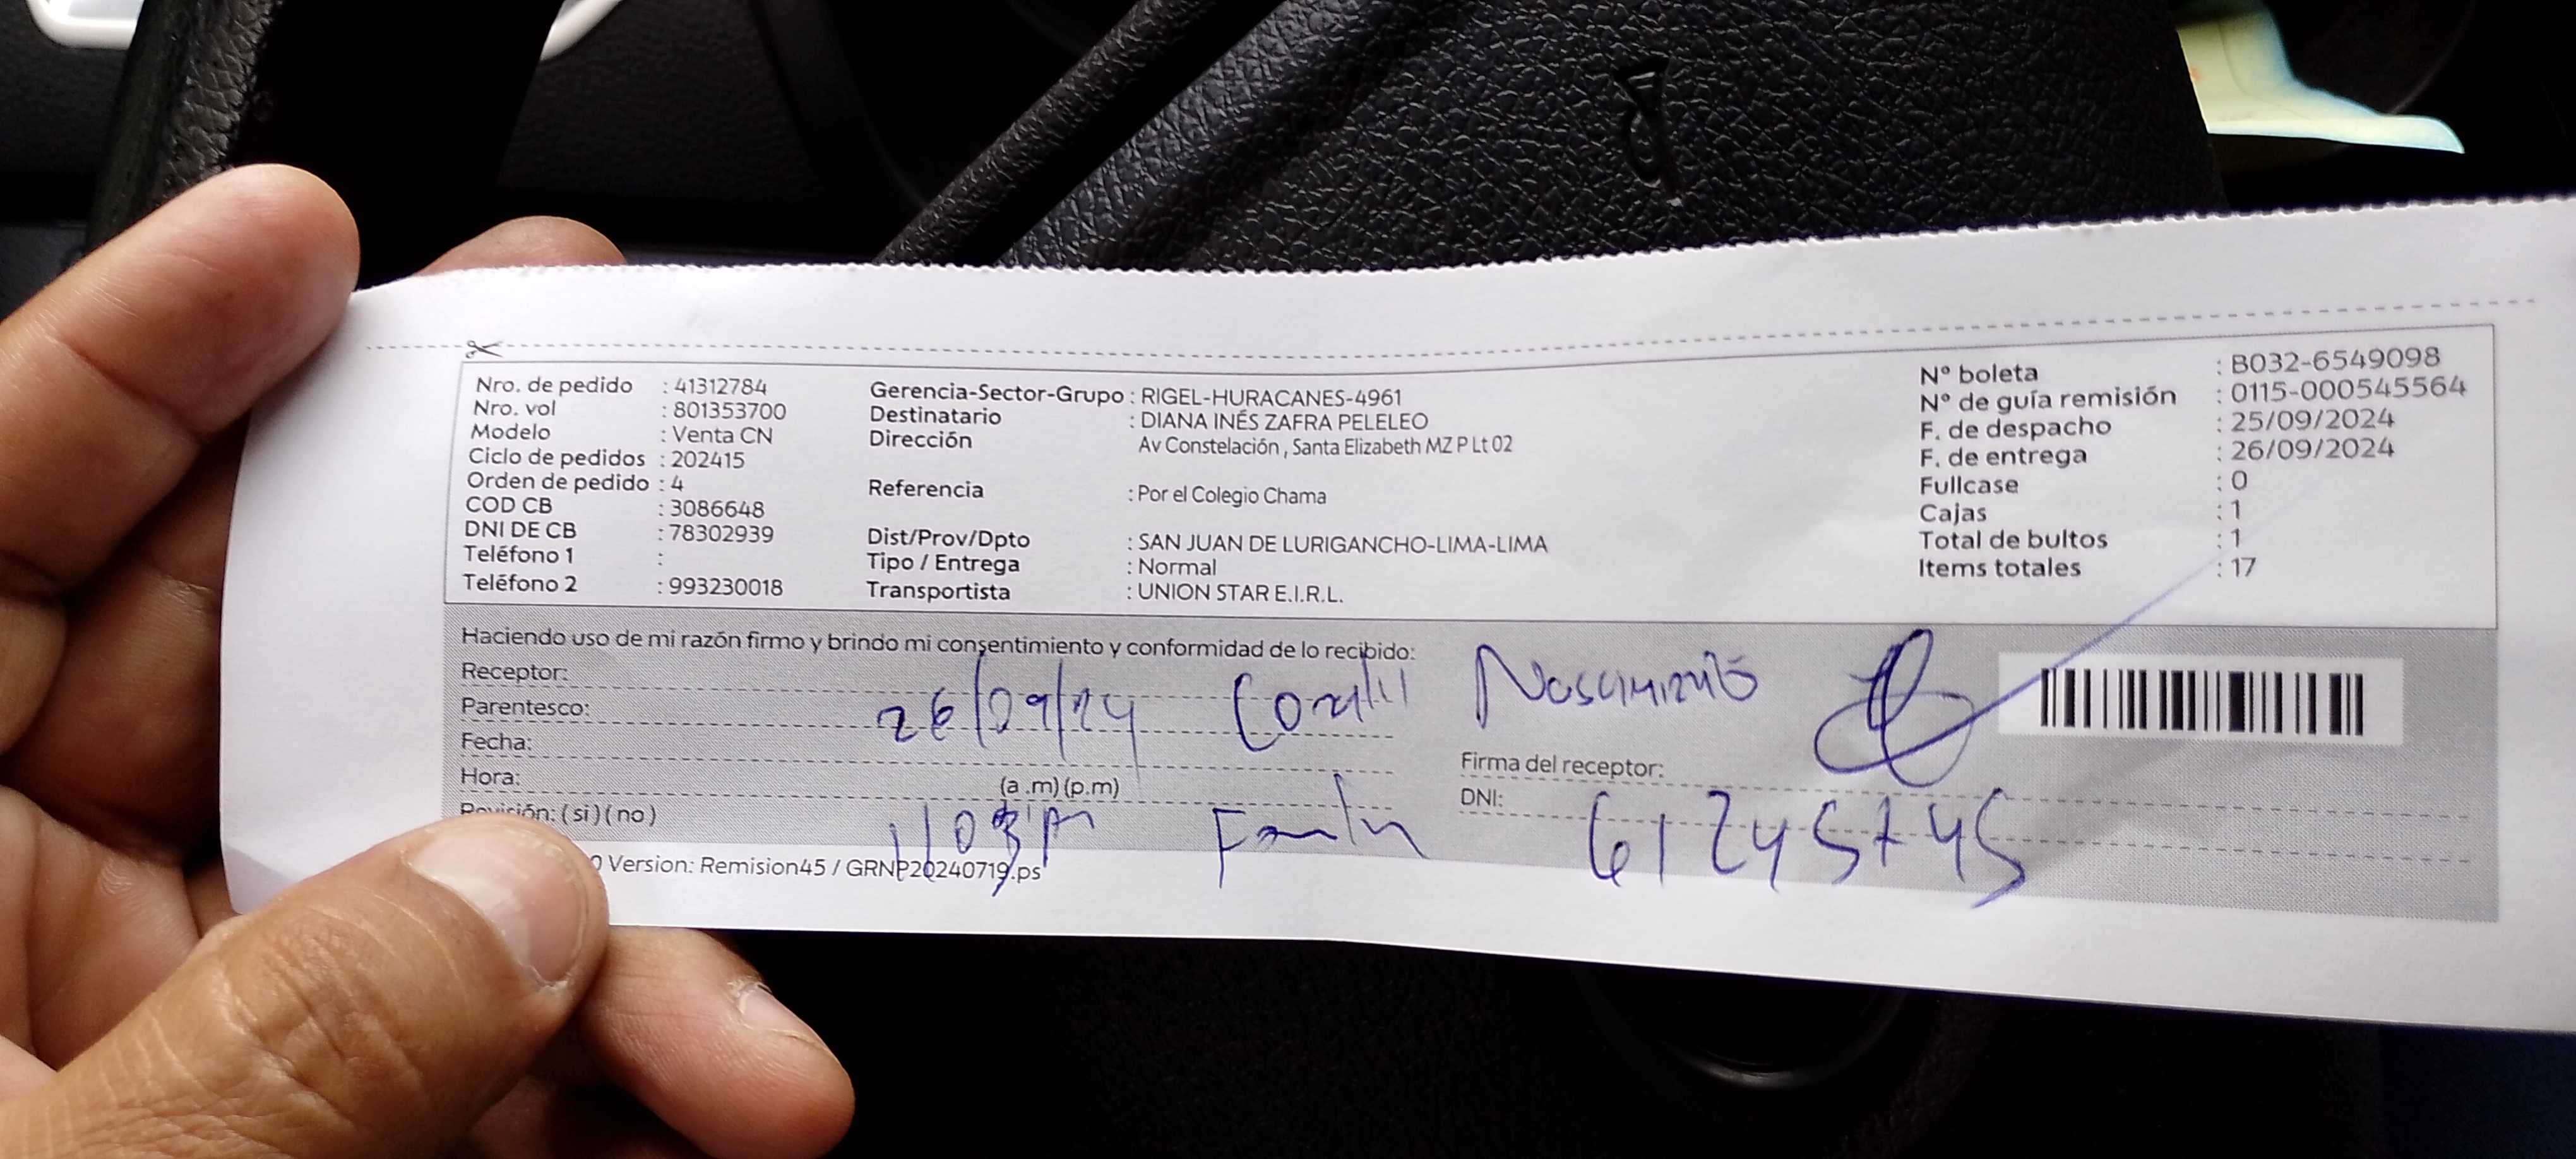 Nro. de pedido : 41312784
Nro. vol : 801353700
Modelo : Venta CN
Ciclo de pedidos : 202415
Orden de pedido : 4
COD CB : 3086648
DNI DE CB : 78302939
Teléfono 1 :
Teléfono 2 : 993230018
Gerencia-Sector-Grupo : RIGEL-HURACANES-4961
Destinatario : DIANA INÉS ZAFRA PELELEO
Dirección Av Constelación , Santa Elizabeth MZ P Lt 02
Referencia : Por el Colegio Chama
Dist/Prov/Dpto : SAN JUAN DE LURIGANCHO-LIMA-LIMA
Tipo / Entrega : Normal
Transportista : UNION STAR E.I.R.L.
N° boleta : B032-6549098
N° de guía remisión : 0115-000545564
F. de despacho : 25/09/2024
F. de entrega : 26/09/2024
Fullcase : 0
Cajas : 1
Total de bultos : 1
Items totales : 17
Haciendo uso de mi razón firmo y brindo mi consentimiento y conformidad de lo recibido:
Receptor:
Parentesco:
26/09/24
Fecha:
Hora: (a .m) (p.m)
Revisión: ( si ) ( no )
Firma del receptor:
DNI: 61245745
0 Version: Remision45 / GRNP20240719.ps